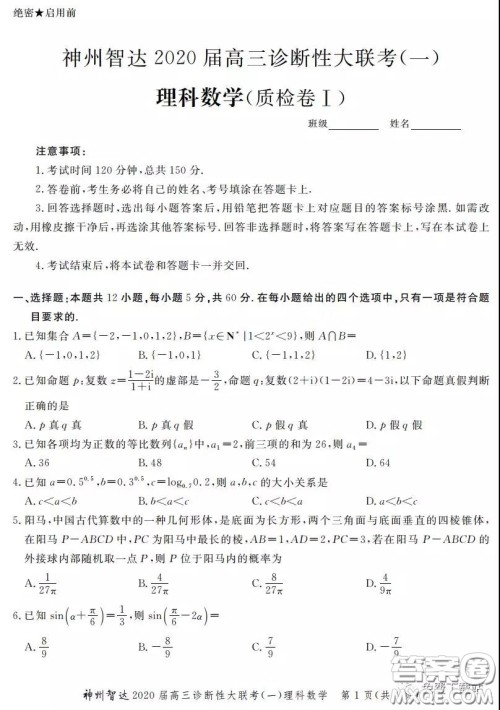 绝密★启用前
神州智达 2020 届高三诊断性大联考(一)
理科数学(质检卷Ⅰ)
班级________ 姓名________
注意事项:
1.考试时间 120 分钟,总共 150 分.
2.答卷前,考生务必将自己的姓名、考号填涂在答题卡上.
3.回答选择题时,选出每小题答案后,用铅笔把答题卡上对应题目的答案标号涂黑.如需改
动,用橡皮擦干净后,再选涂其他答案标号.回答非选择题时,将答案写在答题卡上,写在本试卷上
无效.
4.考试结束后,将本试卷和答题卡一并交回.
一、选择题:本题共 12 小题,每小题 5 分,共 60 分.在每小题给出的四个选项中,只有一项是符合题
目要求的.
1.已知集合 A={-2,-1,0,1,2},B={x∈N*|1<2ˣ<9},则 A∩B=
A.{-1,0,1,2} B.{-1,0,1} C.{0,1,2} D.{1,2}
2.已知命题 p:复数 z=(1-2i)/(1+i) 的虚部是-3/2,命题 q:复数(2+i)(1-2i)=4-3i,以下命题真假判断
正确的是
A. p 真 q 假 B. p 真 q 真 C. p 假 q 真 D. p 假 q 假
3.已知各项均为正数的等比数列{aₙ}中,a₁=2,前三项的和为 26,则 a₄=
A.36 B.48 C.54 D.64
4.已知 a=0.5^0.5,b=0.3^0.5,c=log₀.₇0.2,则 a,b,c 的大小关系是
A.c<a<b B.c<b<a C.a<b<c D.b<a<c
5.阳马,中国古代算数中的一种几何形体,是底面为长方形,两个三角面与底面垂直的四棱锥体,
在阳马 P-ABCD 中,PC 为阳马中最长的棱,AB=1,AD=2,PC=3,若在阳马 P-ABCD 的
外接球内部随机取一点 P,则 P 位于阳马内的概率为
A. 1/(27π) B. 4/(27π) C. 8/(27π) D. 4/(9π)
6.已知 sin(α+π/6)=1/3,则 sin(π/6-2α)=
A. 8/9 B. -8/9 C. 7/9 D. -7/9
神州智达 2020 届高三诊断性大联考(一)理科数学 第 1 页(共